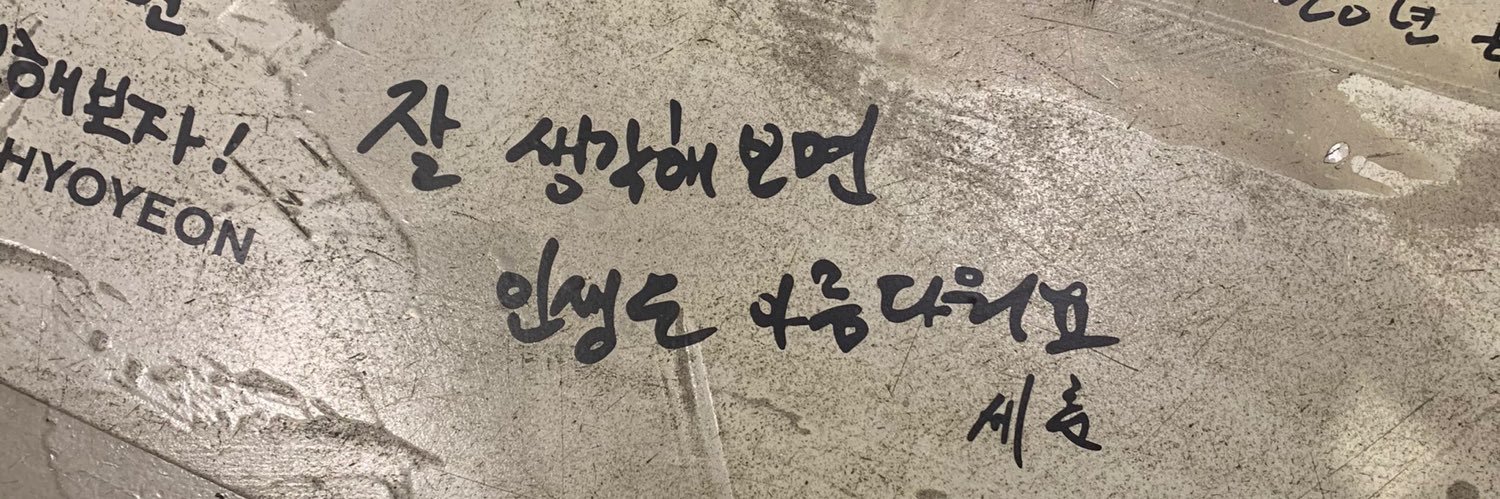 해보자!
HYOYEON
잘 생각해 보면
인생도 아름다워요
세흠